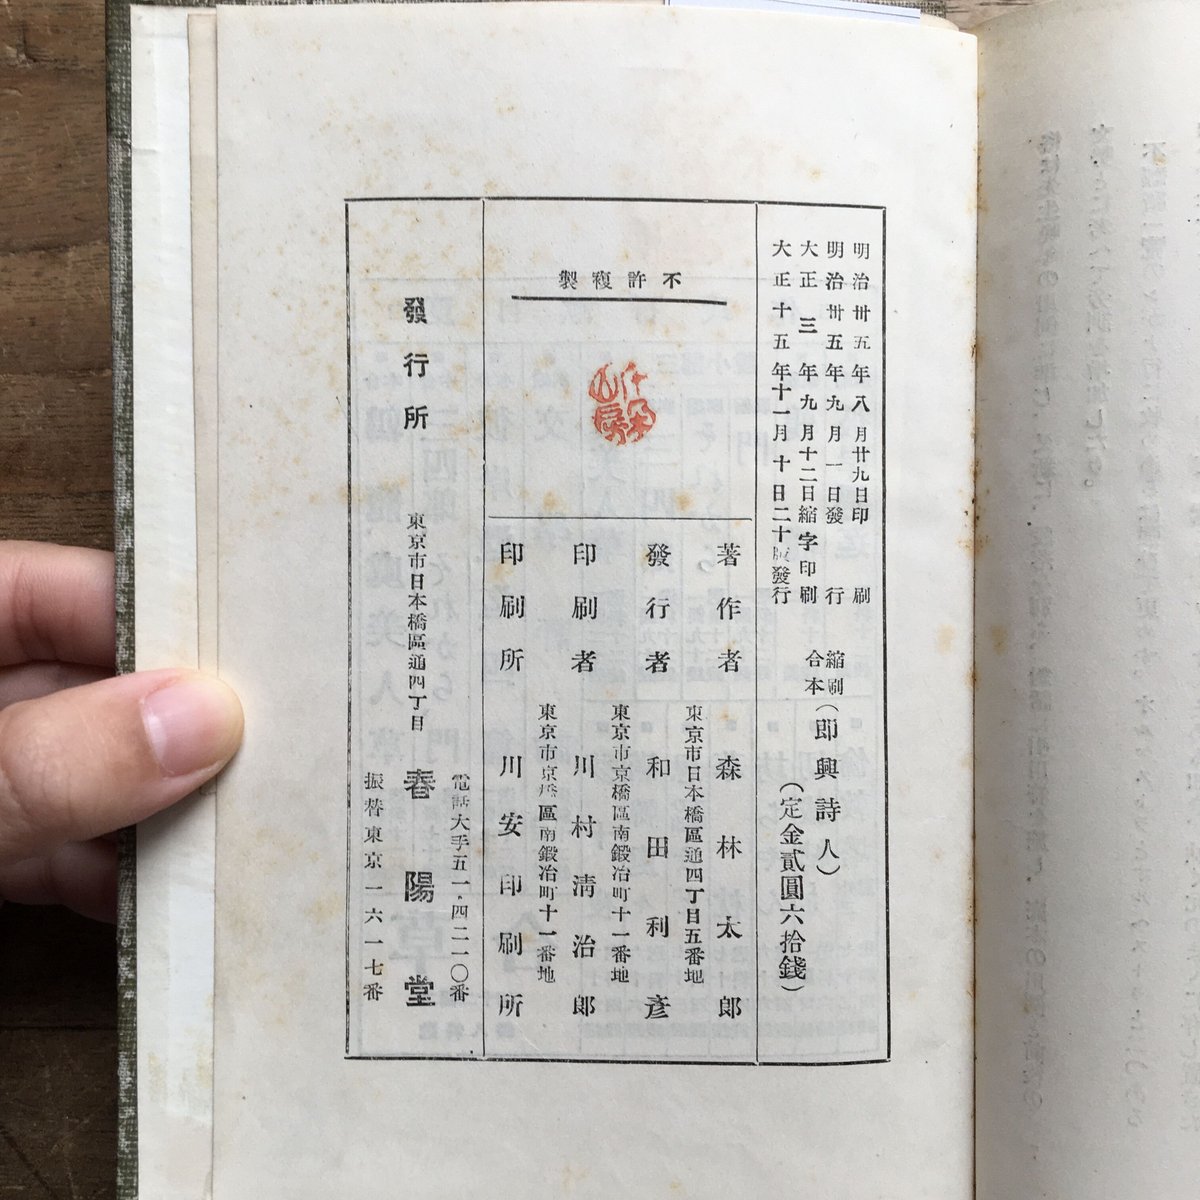 明治卅五年八月廿九日印刷
明治卅五年九月一日發行
大正三年九月十二日縮字印刷
大正十五年十一月十日二十版發行
縮刷
合本
(即興詩人)
(定金貳圓六拾錢)
不許複製
千朶山房
著作者 森林太郎
東京市日本橋區通四丁目五番地
發行者 和田利彥
東京市京橋區南鍛冶町十一番地
印刷者 川村淸治郎
東京市京橋區南鍛冶町十一番地
印刷所 川安印刷所
發行所 東京市日本橋區通四丁目 春陽堂
電話大手五一・四二一〇番
振替東京一六一七番